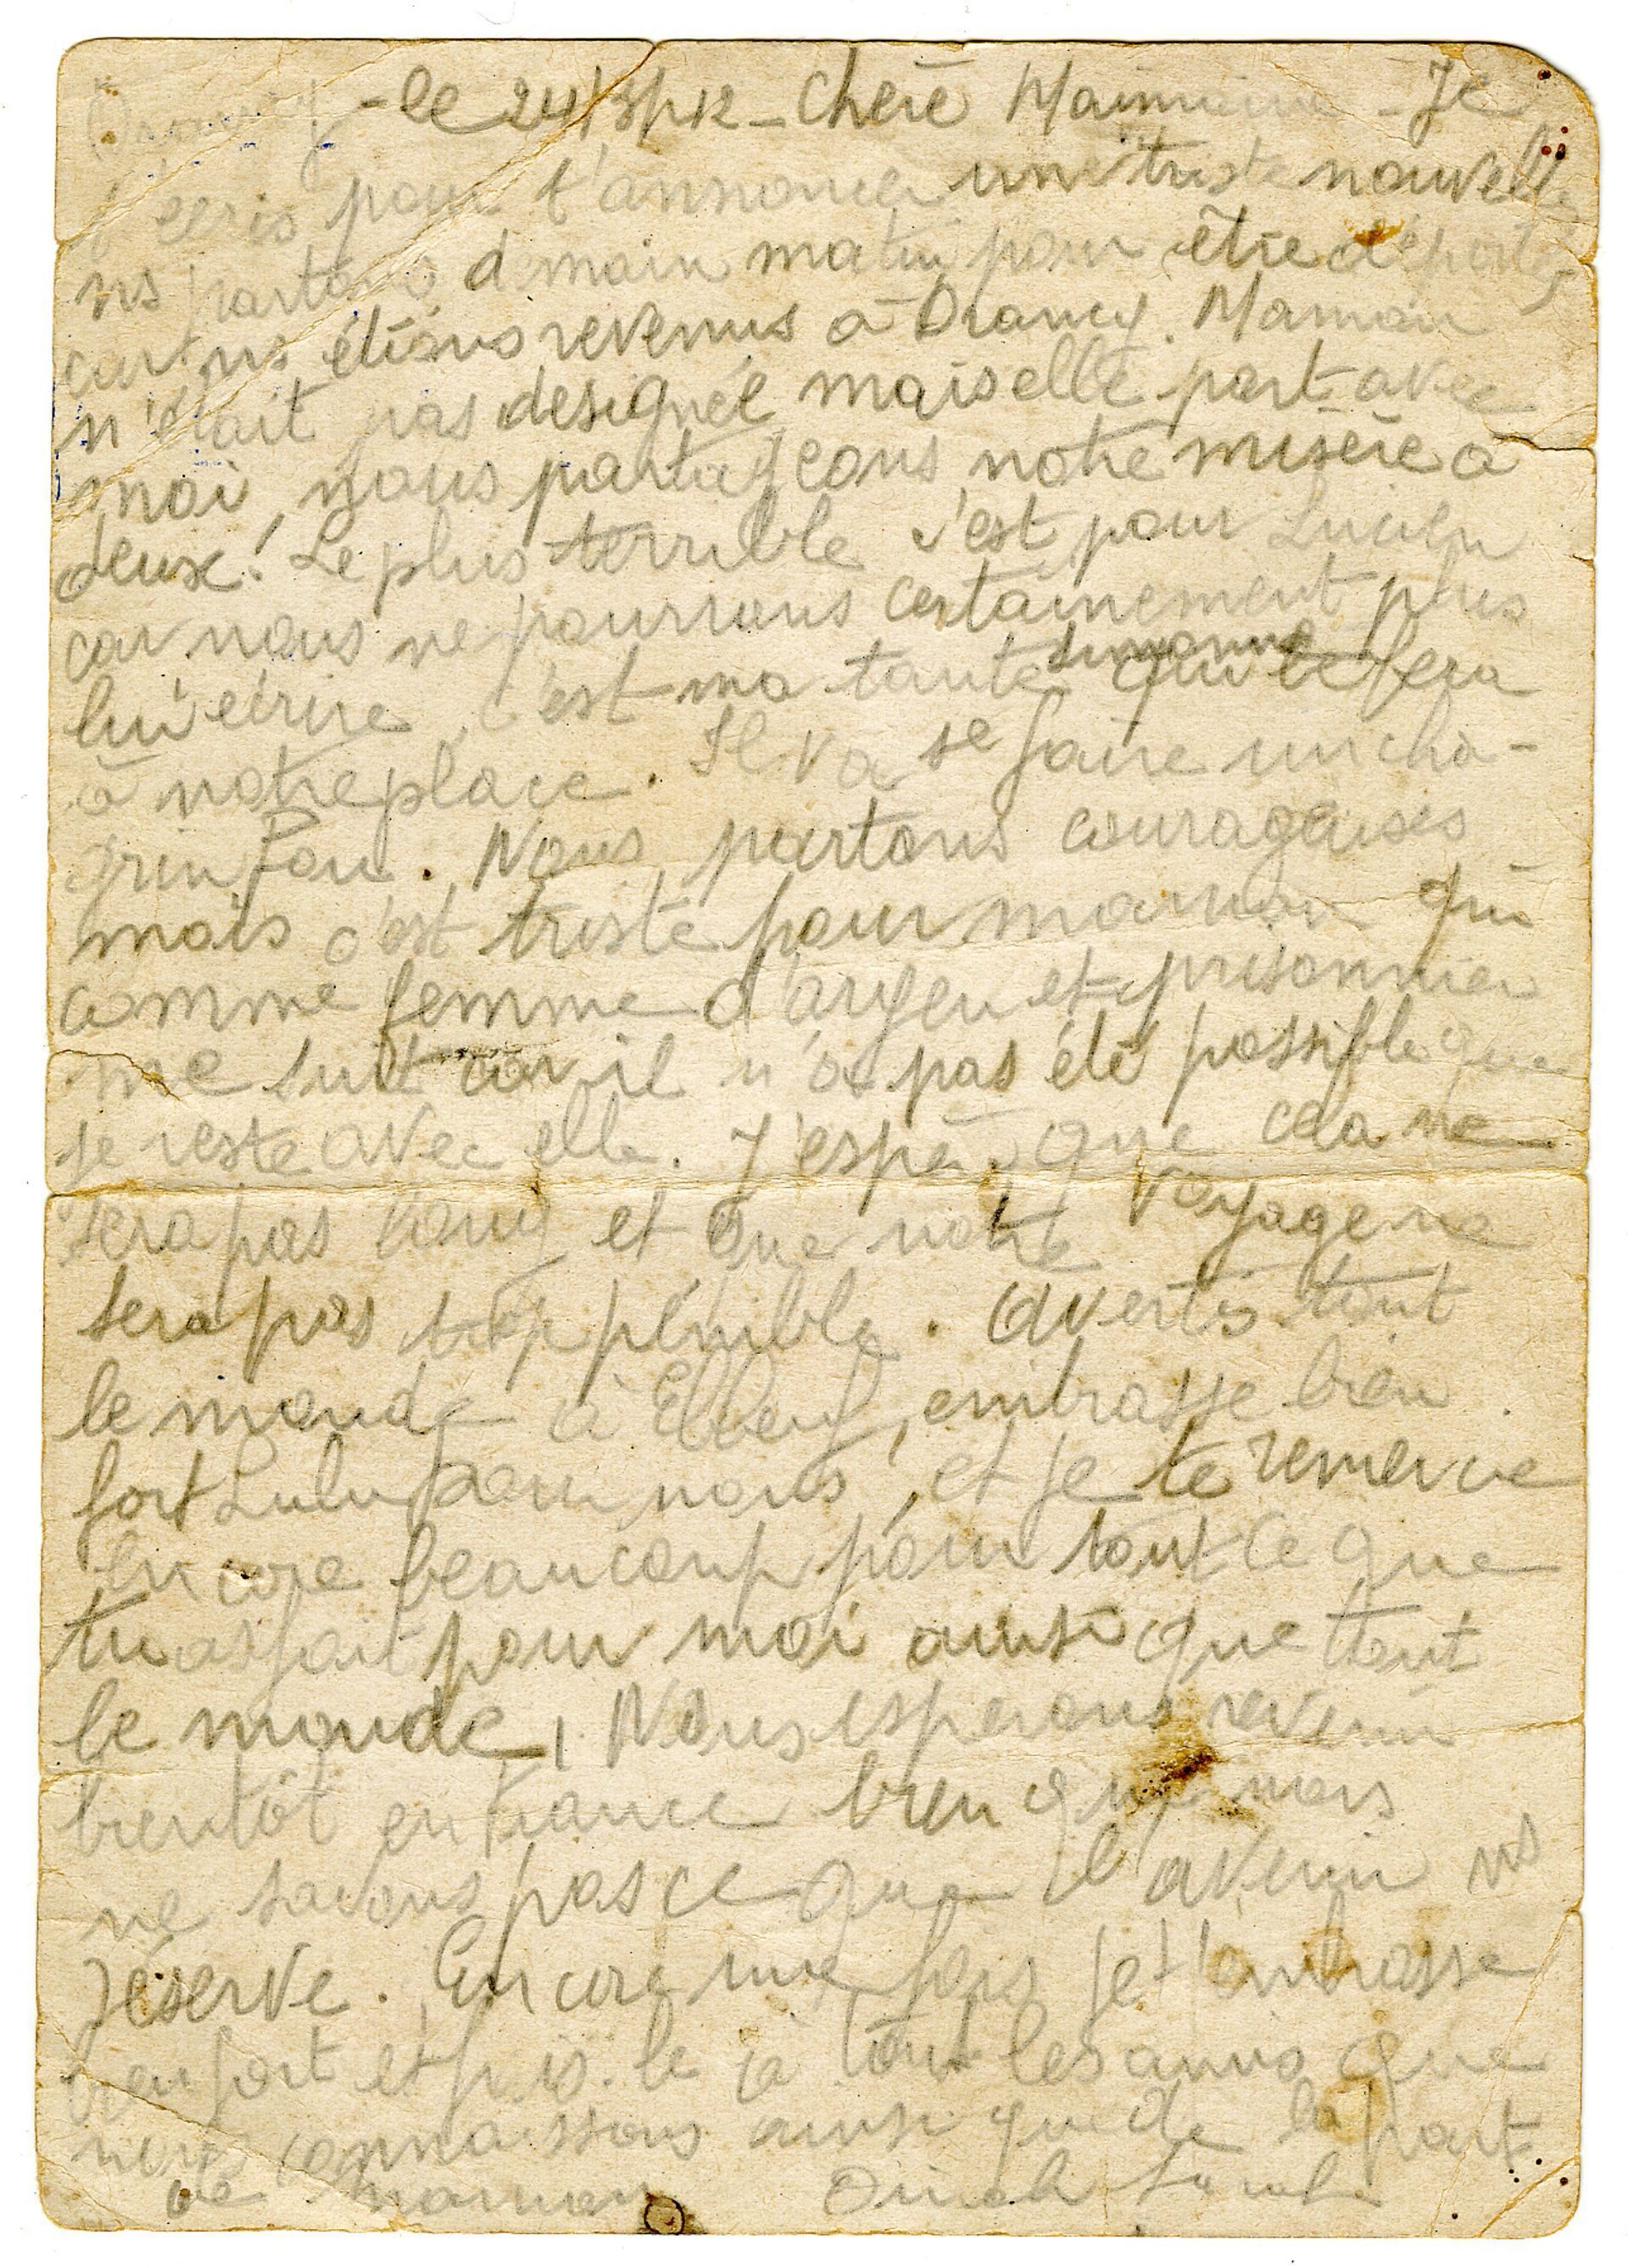 Drancy - le 24/8/42 - Chère Mammine - Je
t'écris pour t'annoncer une triste nouvelle
ns partons demain matin pour être déportés
car ns étions revenus à Drancy. Maman
n'était pas designée mais elle part avec
moi, nous partageons notre misère à
deux! Le plus terrible c'est pour Lucien
car nous ne pourrons certainement plus
lui écrire, c'est ma tante Simonne qui le fera
à notre place. Il va se faire un cha-
grin fou. Nous partons courageuses
mais c'est triste pour maman qui
comme femme d'aryen et prisonnier
me suit car il n'a pas été possible que
je reste avec elle. J'espère que cela ne
sera pas long et que notre voyage ne
sera pas trop pénible. Avertis tout
le monde à Elbeuf, embrasse bien
fort Lulu pour nous, et je te remercie
encore beaucoup pour tout ce que
tu as fait pour moi ainsi que tout
le monde, Nous esperons revenir
bientôt en France bien que nous
ne savons pas ce que l'avenir ns
réserve. Encore une fois je t'embrasse
bien fort et fais-le à tout les amis que
nous connaissons ainsi que de la part
de maman